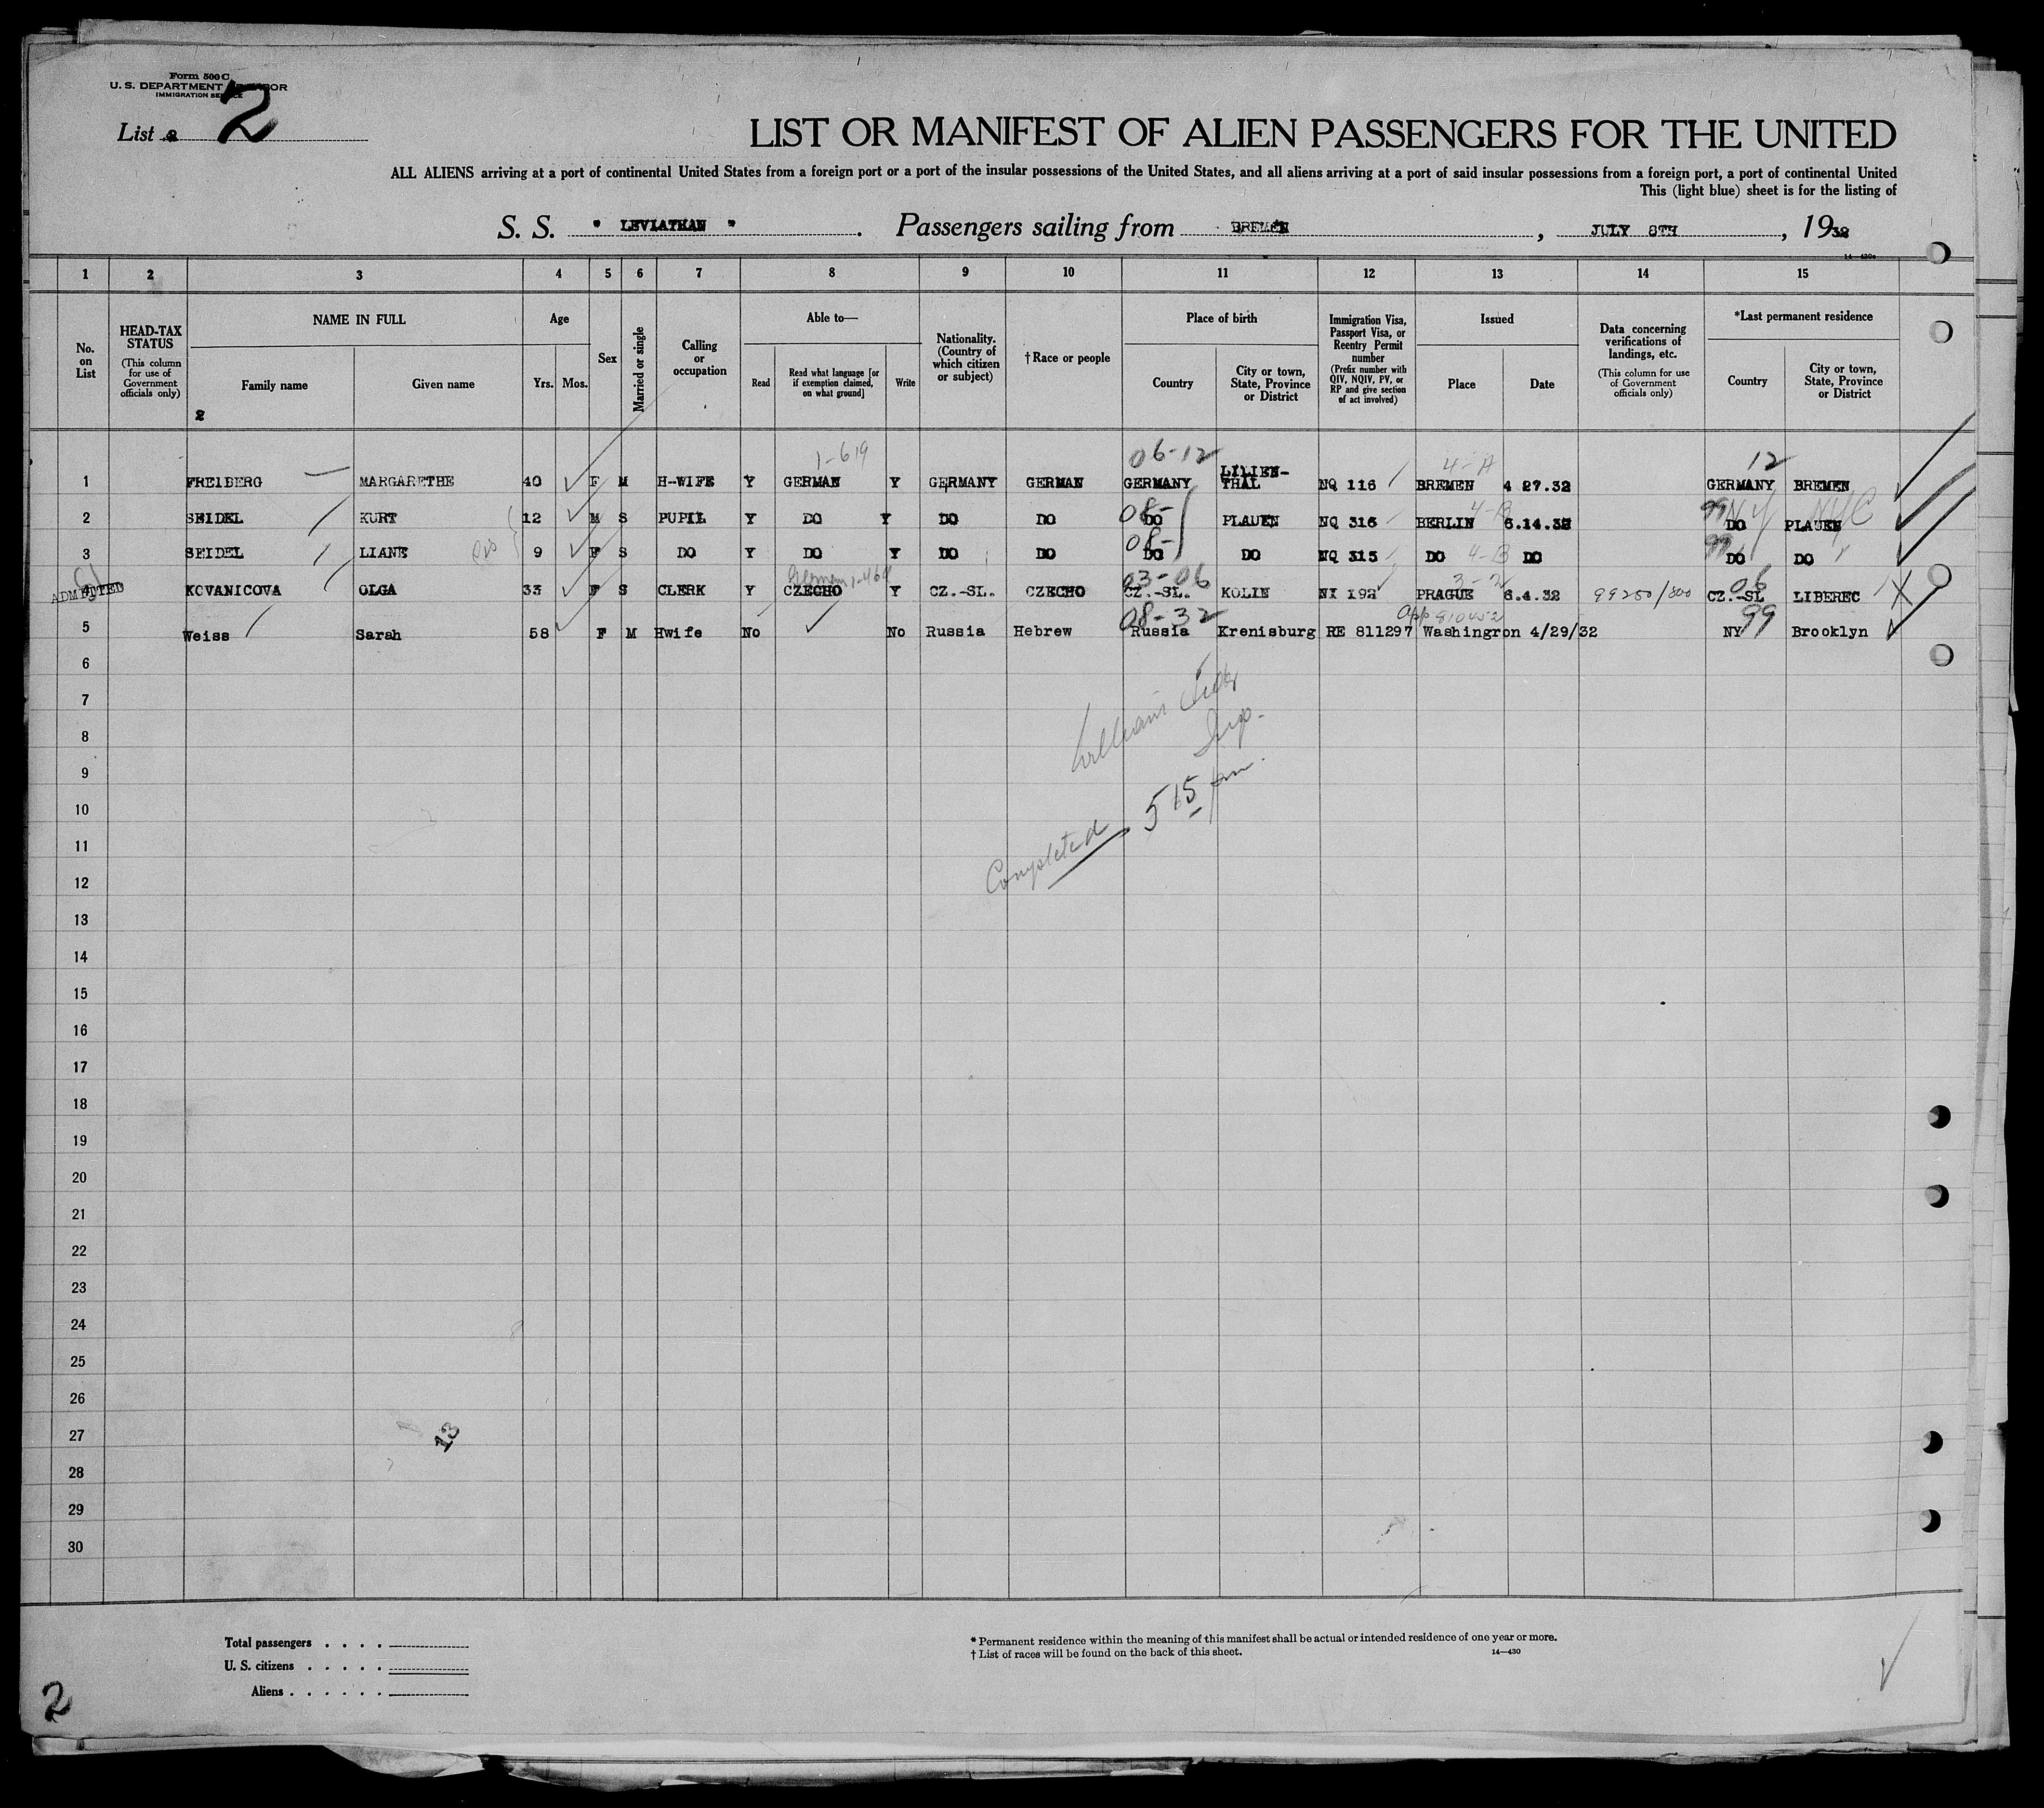 Form 500 C
U. S. DEPARTMENT OF LABOR
IMMIGRATION SERVICE
List 2 2
LIST OR MANIFEST OF ALIEN PASSENGERS FOR THE UNITED
ALL ALIENS arriving at a port of continental United States from a foreign port or a port of the insular possessions of the United States, and all aliens arriving at a port of said insular possessions from a foreign port, a port of continental United
This (light blue) sheet is for the listing of
S. S. " LEVIATHAN " . Passengers sailing from BREMEN , JULY 8TH , 1932
14—430a
1 2 3 4 5 6 7 8 9 10 11 12 13 14 15
No. on List
HEAD-TAX STATUS (This column for use of Government officials only)
NAME IN FULL
Family name
Given name
2
Age
Yrs. Mos.
Sex
Married or single
Calling or occupation
Able to—
Read
Read what language [or if exemption claimed, on what ground]
Write
Nationality. (Country of which citizen or subject)
† Race or people
Place of birth
Country
City or town, State, Province or District
Immigration Visa, Passport Visa, or Reentry Permit number (Prefix number with QIV, NQIV, PV, or RP and give section of act involved)
Issued
Place
Date
Data concerning verifications of landings, etc. (This column for use of Government officials only)
*Last permanent residence
Country
City or town, State, Province or District
1-619 06-12 4-A 12
1 FREIBERG MARGARETHE 40 F M H-WIFE Y GERMAN Y GERMANY GERMAN GERMANY LILIEN-THAL NQ 116 BREMEN 4 27.32 GERMANY BREMEN
08- 4-B 99 NY NYC
2 SEIDEL KURT 12 M S PUPIL Y DO Y DO DO DO PLAUEN NQ 316 BERLIN 6.14.32 DO PLAUEN
08- 4-B 99
3 SEIDEL LIANE 9 F S DO Y DO Y DO DO DO DO NQ 315 DO DO DO DO
ADMITTED German 1-461 03-06 3-2 99250/800 06
4 KOVANICOVA OLGA 33 F S CLERK Y CZECHO Y CZ.-SL. CZECHO CZ.-SL. KOLIN NI 192 PRAGUE 6.4.32 CZ.-SL LIBEREC X
08-32 app 810452 99
5 Weiss Sarah 58 F M Hwife No No Russia Hebrew Russia Krenisburg RE 811297 Washingron 4/29/32 NY Brooklyn
6
7
William
8
Insp.
9
10
5 15 pm.
11
Completed
12
13
14
15
16
17
18
19
20
21
22
23
24
25
26
27
13
28
29
30
Total passengers . . . .
U. S. citizens . . . . .
Aliens . . . . . .
* Permanent residence within the meaning of this manifest shall be actual or intended residence of one year or more.
† List of races will be found on the back of this sheet.
14—430
2